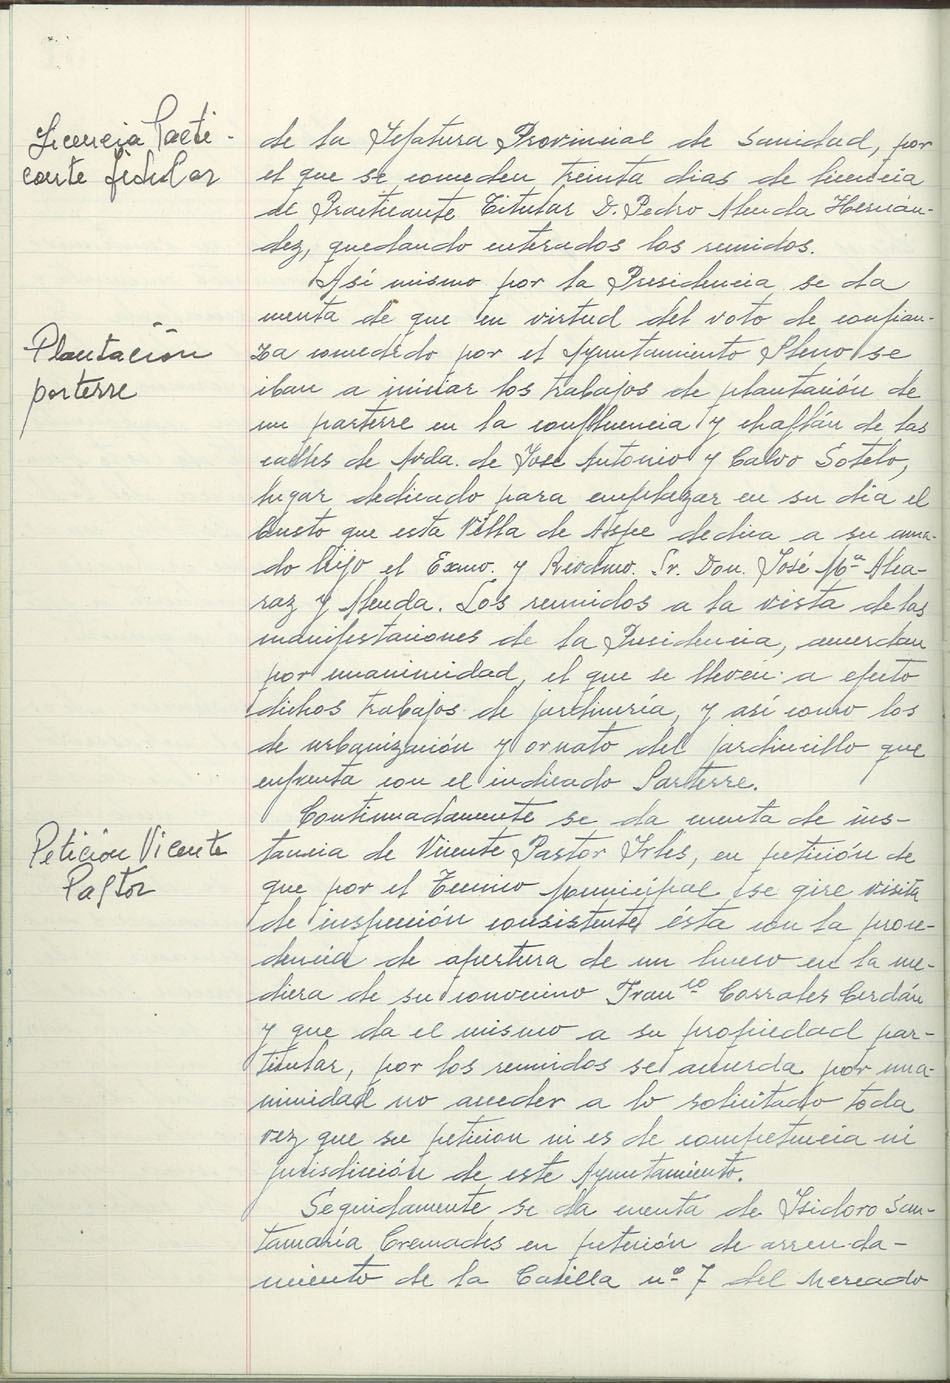 Licencia Practi-
cante titular
de la Jefatura Provincial de Sanidad, por
el que se conceden treinta dias de licencia
al Practicante Titular D. Pedro Alenda Hernán-
dez, quedando enterados los reunidos.
Así mismo por la Presidencia se da
cuenta de que en virtud del voto de confian-
Plantación
parterre
za concedido por el Ayuntamiento Pleno se
iban a iniciar los trabajos de plantación de
un parterre en la confluencia y chaflán de las
calles de Avda. de José Antonio y Calvo Sotelo,
lugar dedicado para emplazar en su dia el
busto que esta Villa de Aspe dedica a su ama-
do hijo el Exmo. y Rvdmo. Sr. Don José Mª Alca-
raz y Alenda. Los reunidos a la vista de las
manifestaciones de la Presidencia, acuerdan
por unanimidad, el que se lleven a efecto
dichos trabajos de jardinería, y así como los
de urbanización y ornato del jardincillo que
enfrenta con el indicado Parterre.
Continuadamente se da cuenta de ins-
Petición Vicente
Pastor
tancia de Vicente Pastor Irles, en petición de
que por el Tecnico Municipal se gire visita
de inspección consistente ésta con la proce-
dencia de apertura de un hueco en la me-
diera de su convecino Franco Corrales Cerdán
y que da el mismo a su propiedad par-
ticular, por los reunidos se acuerda por una-
nimidad no acceder a lo solicitado toda
vez que su peticion ni es de competencia ni
jurisdicción de este Ayuntamiento.
Seguidamente se da cuenta de Isidoro San-
tamaría Cremades en petición de arrenda-
miento de la Casilla nº 7 del Mercado